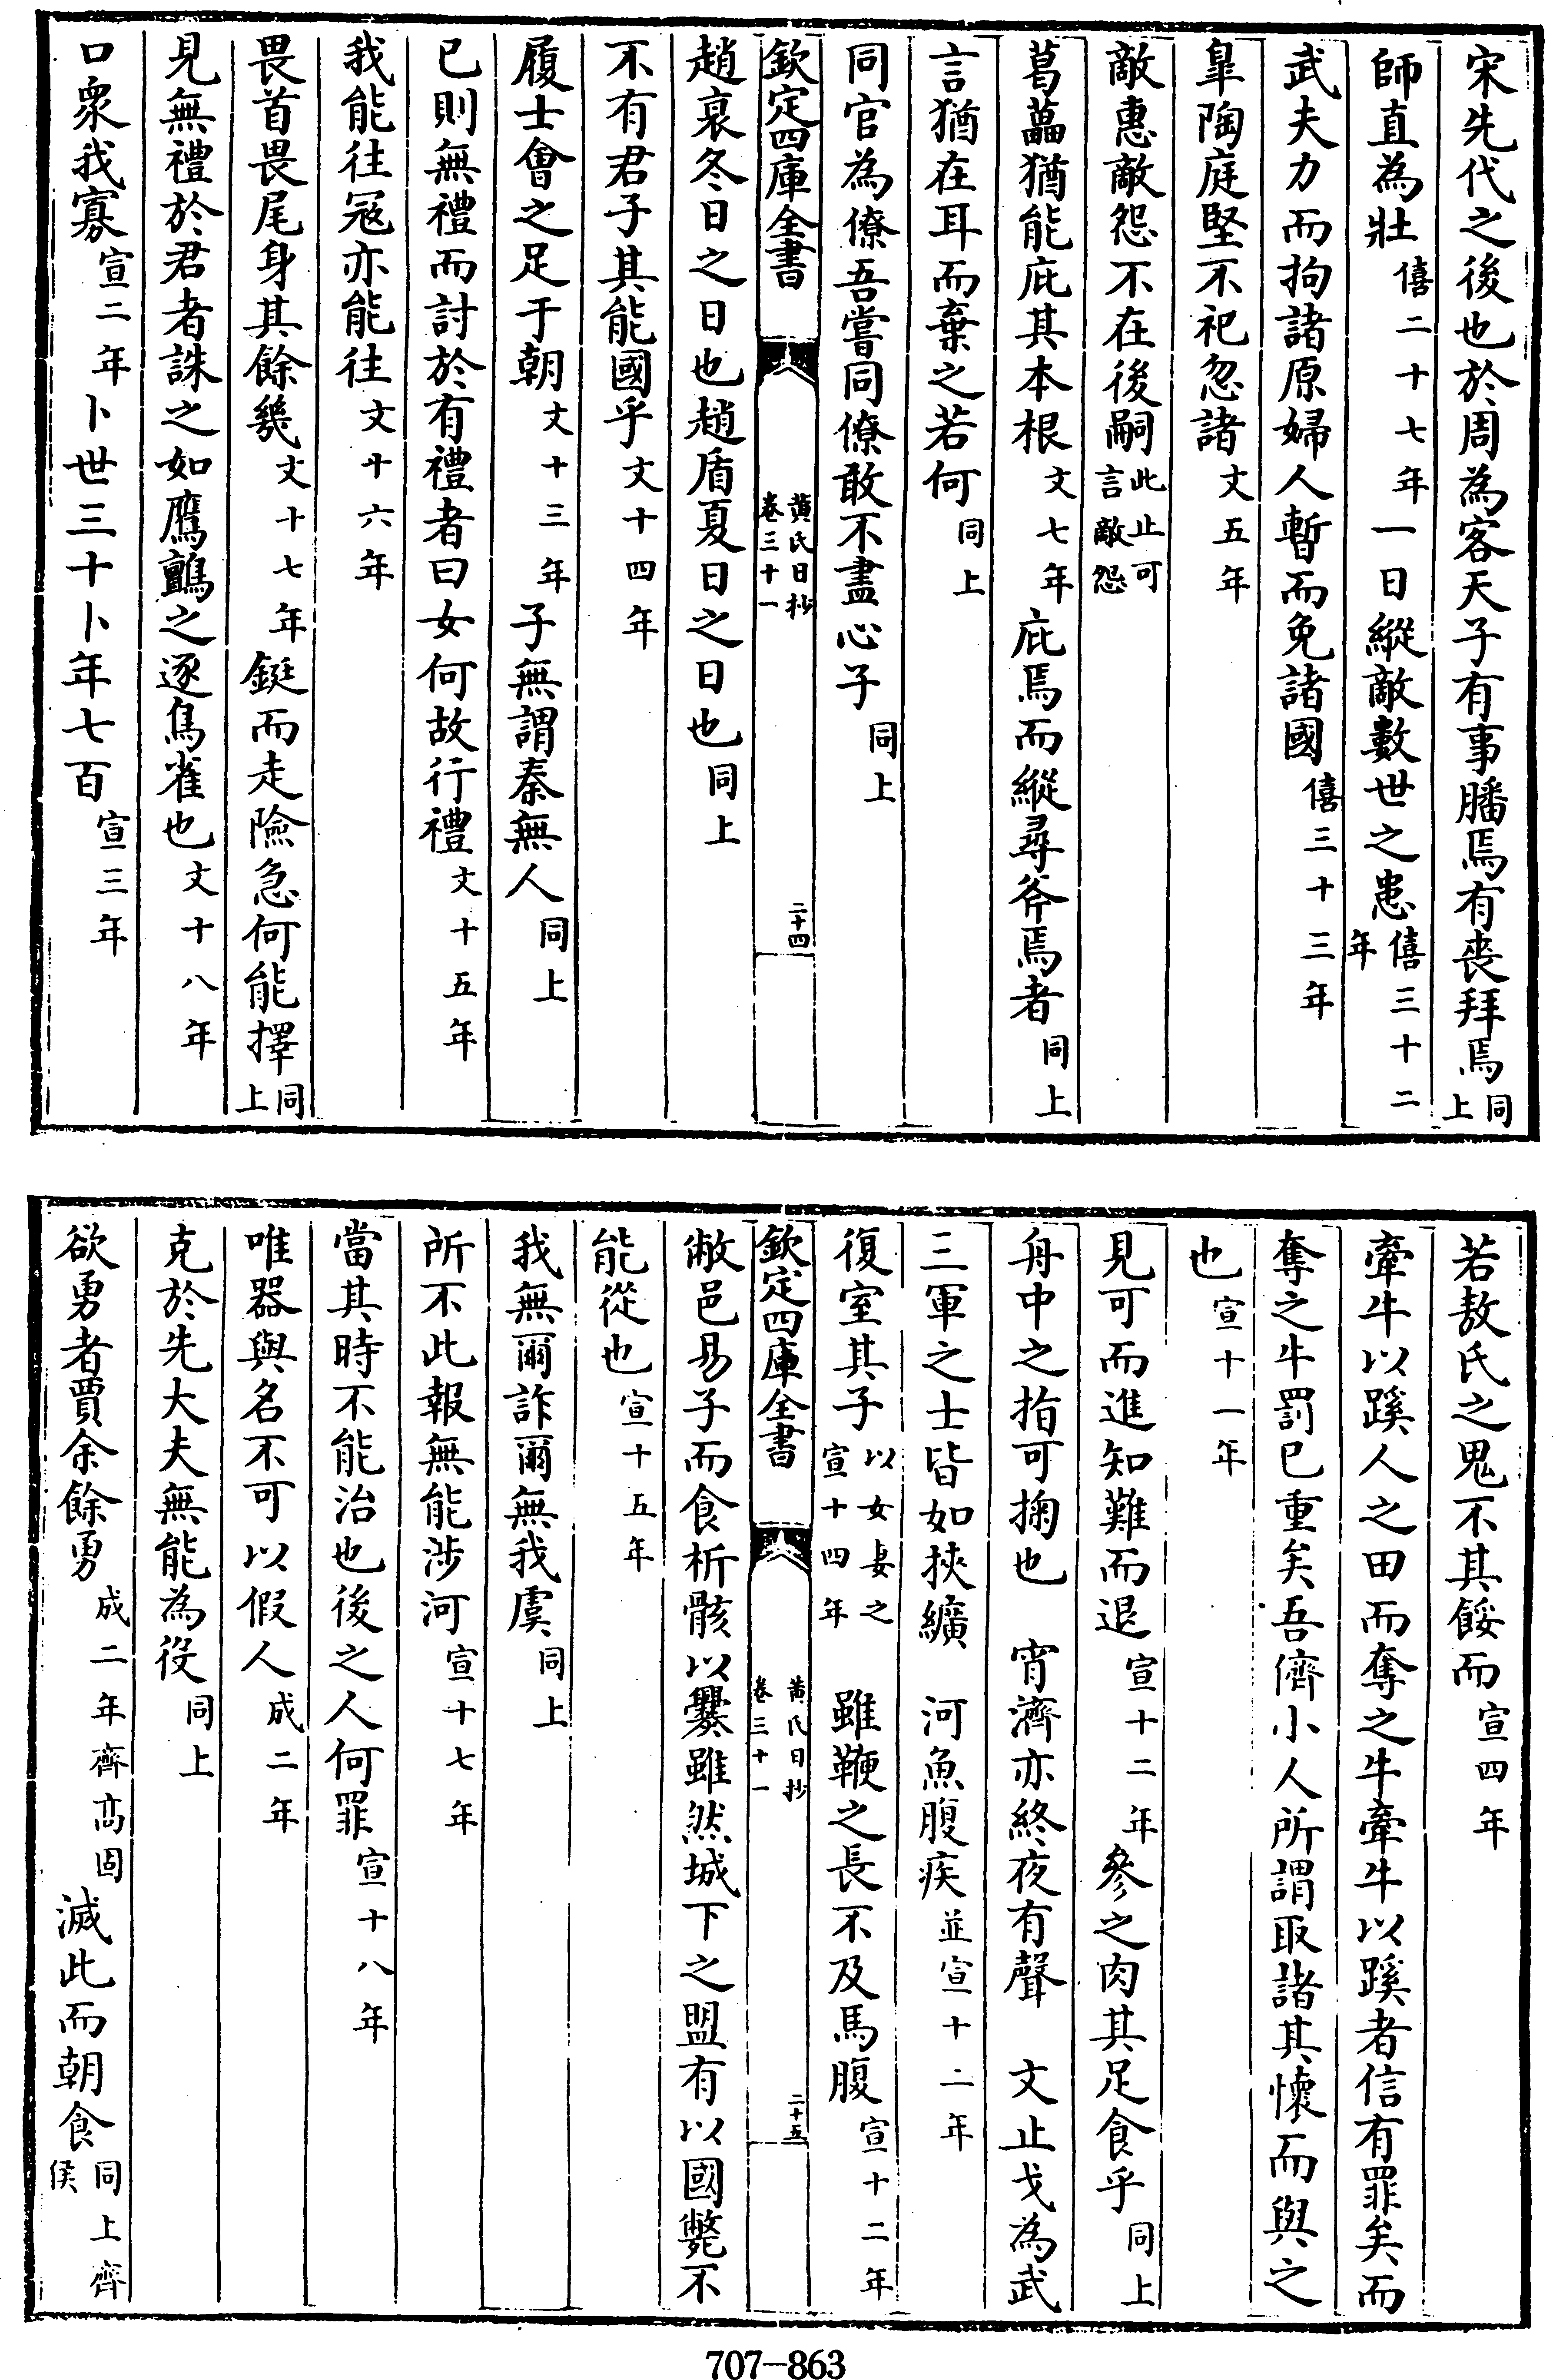 宋先代之後也於周為客天子有事膰焉有喪拜焉同上
師直為壯僖二十七年一日縱敵數世之患僖三十二年
武夫力而拘諸原婦人暫而免諸國僖三十三年
皐陶庭堅不祀忽諸文五年
敵惠敵怨不在後嗣此止可言敵怨
葛藟猶能庇其本根文七年庇焉而縱尋斧焉者同上
言猶在耳而棄之若何同上
同官為僚吾嘗同僚敢不盡心子同上
欽定四庫全書 黃氏日抄卷三十一 二十四
趙衰冬日之日也趙盾夏日之日也同上
不有君子其能國乎文十四年
履士會之足于朝文十三年子無謂秦無人同上
已則無禮而討於有禮者曰女何故行禮文十五年
我能往冦亦能往文十六年
畏首畏尾身其餘幾文十七年鋌而走險急何能擇同上
見無禮於君者誅之如鷹鸇之逐鳥雀也文十八年
口衆我寡宣二年卜世三十卜年七百宣三年
若敖氏之鬼不其餒而宣四年
牽牛以蹊人之田而奪之牛牽牛以蹊者信有罪矣而
奪之牛罰已重矣吾儕小人所謂取諸其懷而與之
也宣十一年
見可而進知難而退宣十二年參之肉其足食乎同上
舟中之指可掬也 宵濟亦終夜有聲 文止戈為武
三軍之士皆如挾纊 河魚腹疾並宣十二年
復室其子以女妻之宣十四年 雖鞭之長不及馬腹宣十二年
欽定四庫全書 黃氏日抄卷三十一 二十五
敝邑易子而食析骸以爨雖然城下之盟有以國斃不
能從也宣十五年
我無爾詐爾無我虞同上
所不此報無能涉河宣十七年
當其時不能治也後之人何罪宣十八年
唯器與名不可以假人成二年
克於先大夫無能為役同上
欲勇者賈余餘勇成二年齊高固滅此而朝食同上齊侯
707-863